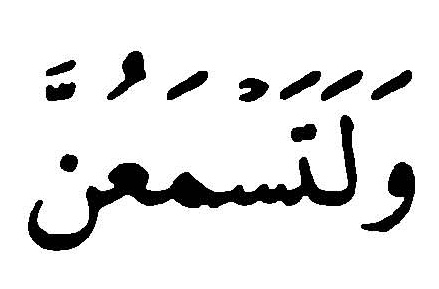 وَلَتَسْمَعُنَّ